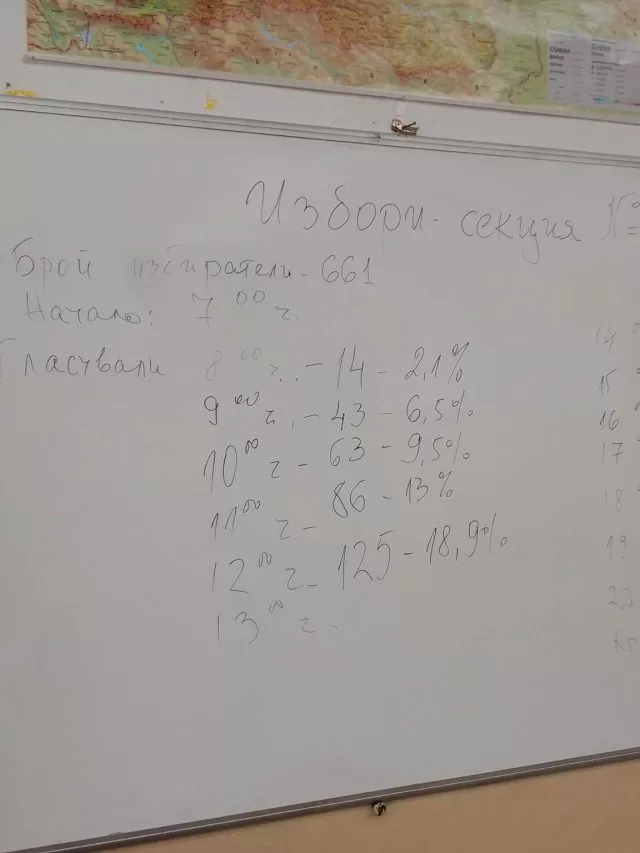 СОФИЯ
Избори - секция №
Брой избиратели - 661
Начало: 7 00 ч.
Гласували 8 00 ч. - 14 - 2,1%
9 00 ч. - 43 - 6,5%
10 00 ч - 63 - 9,5%
11 00 ч - 86 - 13%
12 00 ч - 125 - 18,9%
13 00 ч -
14
15
16
17
18
19